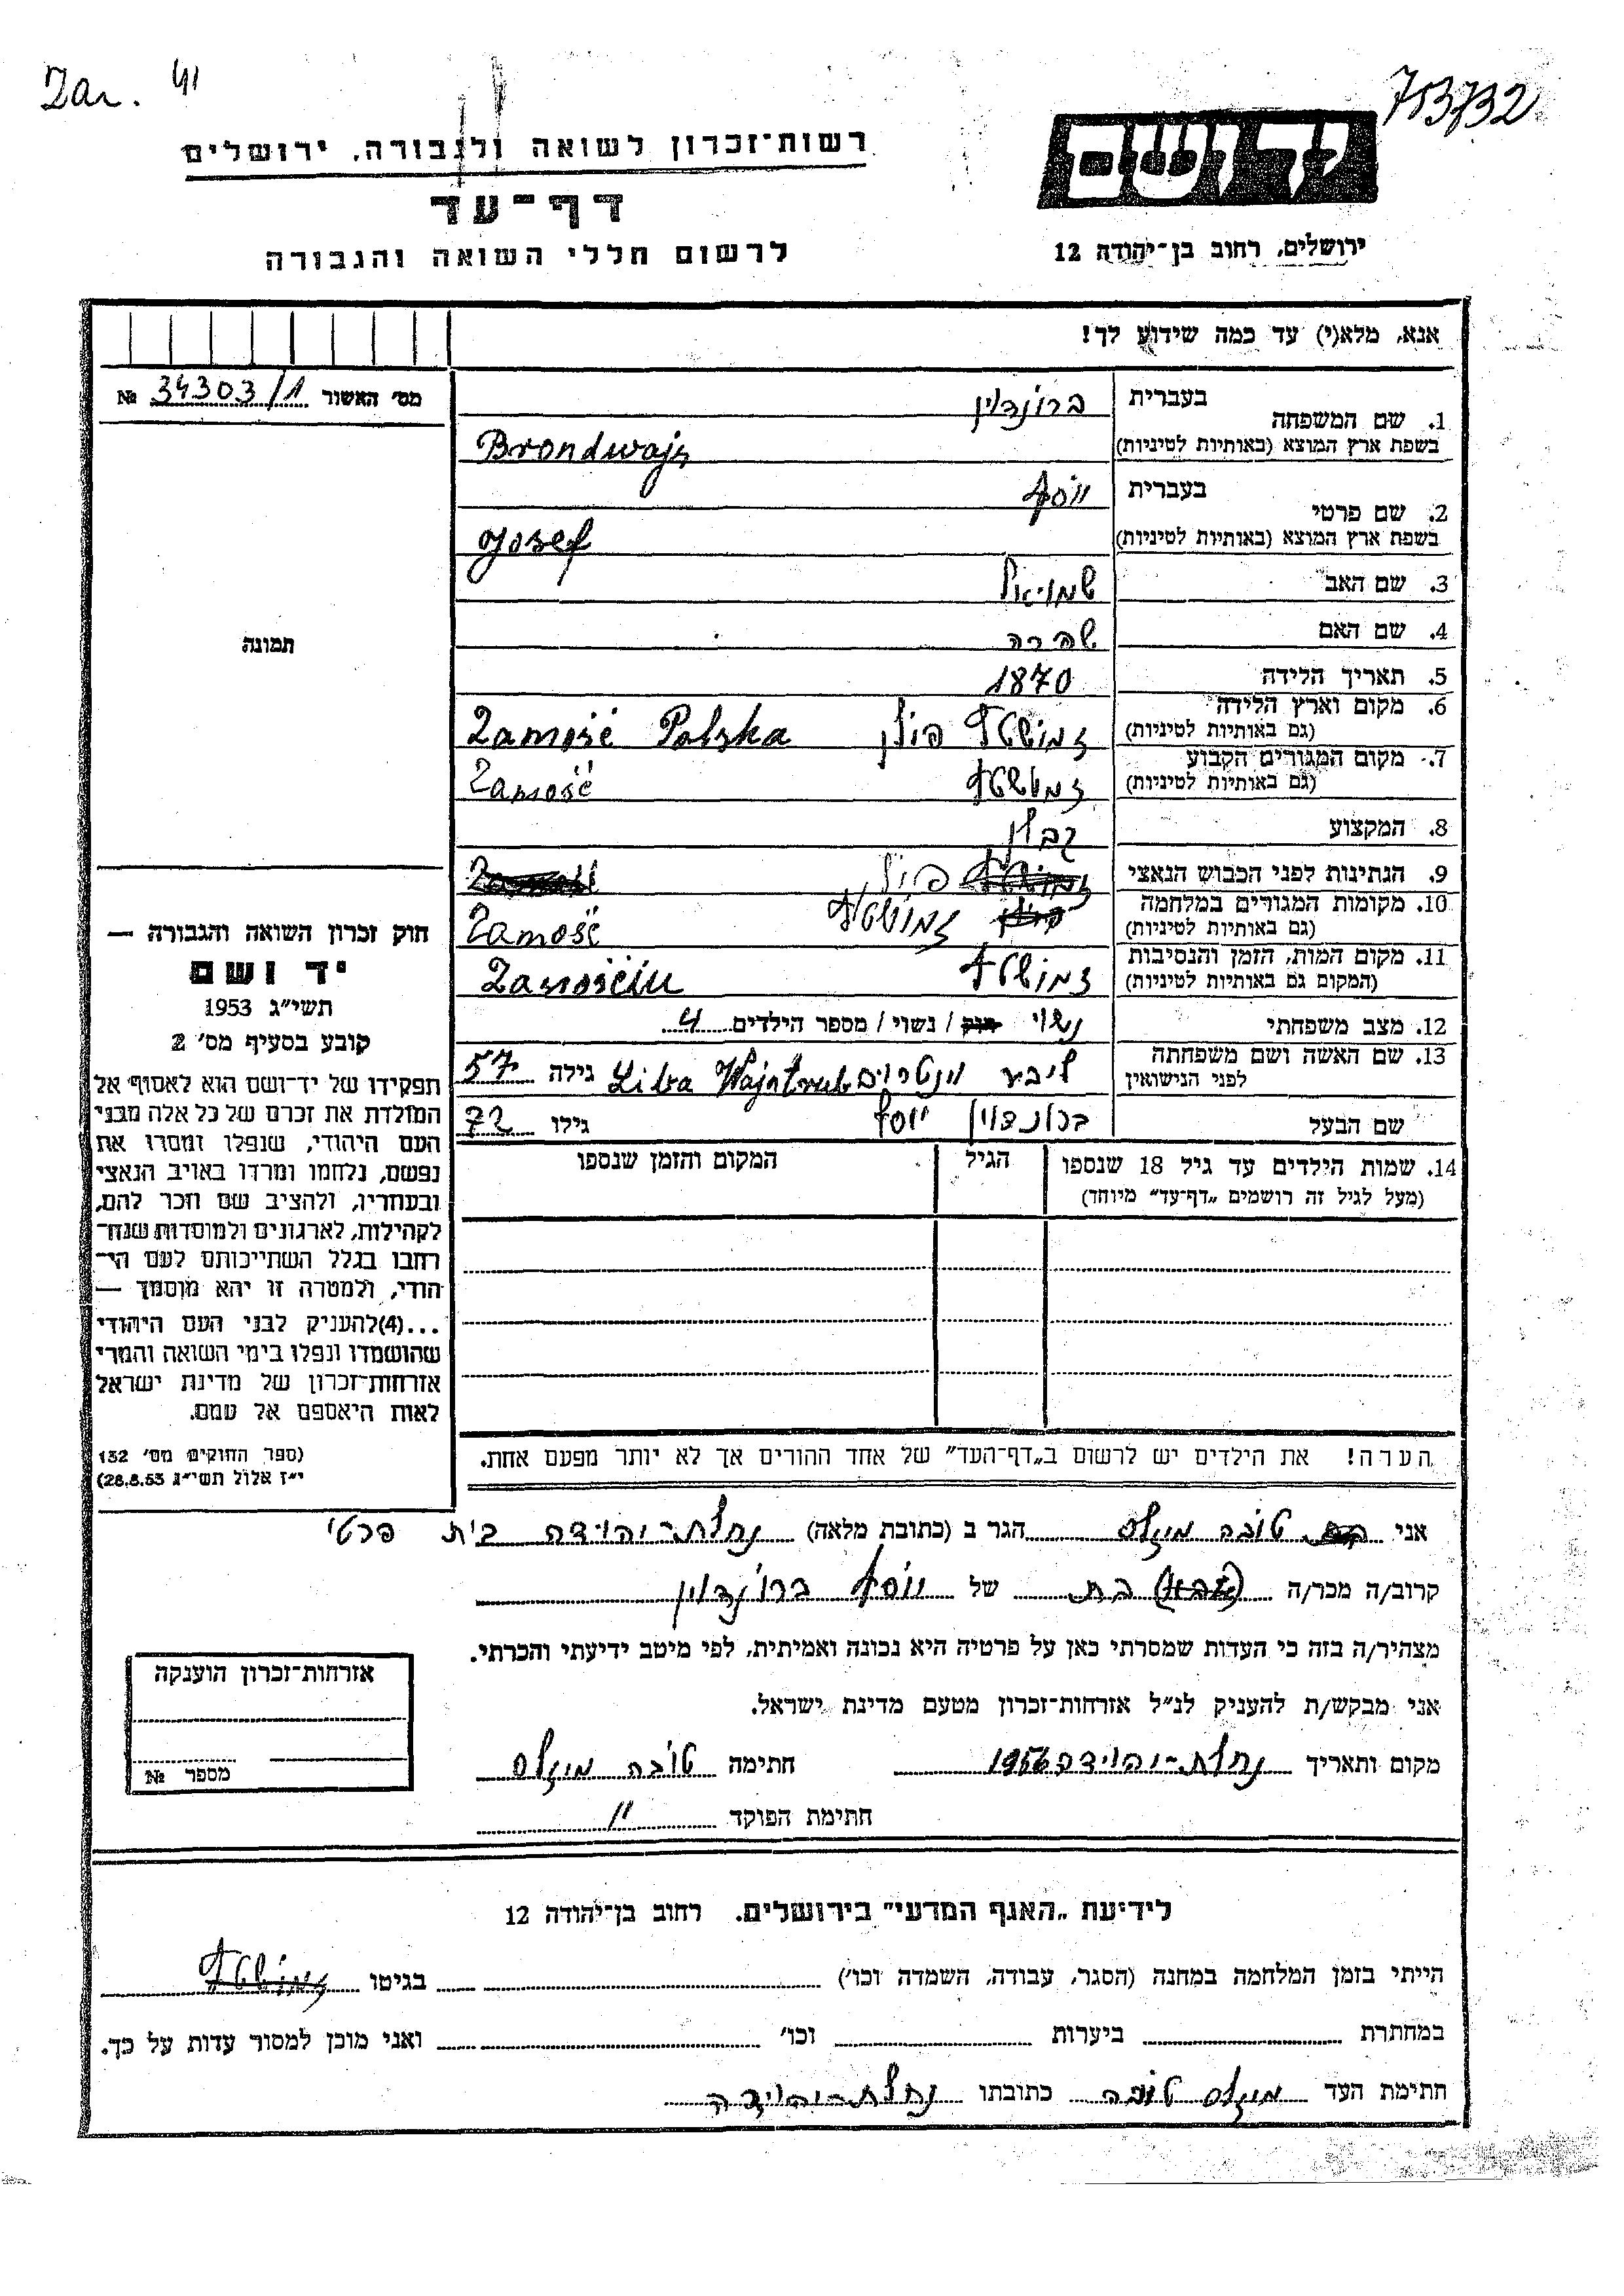 Zar. 41
753732
רשות־זכרון לשואה ולגבורה, ירושלים
דף־עד
לרשום חללי השואה והגבורה
יד ושם
ירושלים, רחוב בן־יהודה 12
אנא, מלא(י) עד כמה שידוע לך!
מס׳ האשור 34303/1 №
1. שם המשפחה בעברית ברונדווין
בשפת ארץ המוצא (באותיות לטיניות) Brondwajn
2. שם פרטי בעברית יוסף
בשפת ארץ המוצא (באותיות לטיניות) Josef
3. שם האב שמויאל
4. שם האם שהרה
5. תאריך הלידה 1870
6. מקום וארץ הלידה זמושטץ פולן Zamość Polska
(גם באותיות לטיניות)
7. מקום המגורים הקבוע זמושטץ Zamość
(גם באותיות לטיניות)
8. המקצוע קבלן
9. הנתינות לפני הכבוש הנאצי פולן
10. מקומות המגורים במלחמה זמושטץ Zamość
(גם באותיות לטיניות)
11. מקום המות, הזמן והנסיבות זמושטץ Zamościu
(המקום גם באותיות לטיניות)
12. מצב משפחתי נשוי רווק / נשוי / מספר הילדים 4
13. שם האשה ושם משפחתה ליבע וינטרוים Liba Wajntraub גילה 57
לפני הנישואין
שם הבעל ברונדוין יוסף גילו 72
14. שמות הילדים עד גיל 18 שנספו הגיל המקום והזמן שנספו
(מעל לגיל זה רושמים „דף־עד״ מיוחד)
תמונה
חוק זכרון השואה והגבורה —
יד ושם
תשי״ג 1953
קובע בסעיף מס׳ 2
תפקידו של יד־ושם הוא לאסוף אל
המולדת את זכרם של כל אלה מבני
העם היהודי, שנפלו ומסרו את
נפשם, נלחמו ומרדו באויב הנאצי
ובעוזריו, ולהציב שם וזכר להם,
לקהילות, לארגונים ולמוסדות שנח־
רחבו בגלל השתייכותם לעם הי־
הודי, ולמטרה זו יהא מוסמך —
...(4)להעניק לבני העם היהודי
שהושמדו ונפלו בימי השואה והמרי
אזרחות־זכרון של מדינת ישראל
לאות היאספם אל עמם.
(ספר החוקים מס׳ 132
י״ז אלול תשי״ג 28.8.53)
הערה! את הילדים יש לרשום ב„דף־העד״ של אחד ההורים אך לא יותר מפעם אחת.
אני טובה הגר ב (כתובת מלאה) נחלת־יהודה בית פרטי
קרוב/ה מכר/ה בת של יוסף ברונדוין
מצהיר/ה בזה כי העדות שמסרתי כאן על פרטיה היא נכונה ואמיתית, לפי מיטב ידיעתי והכרתי.
אני מבקש/ת להעניק לנ״ל אזרחות־זכרון מטעם מדינת ישראל.
מקום ותאריך נחלת־יהוידה 1956 חתימה טובה
חתימת הפוקד "
אזרחות־זכרון הוענקה
מספר №
לידיעת „האגף המדעי״ בירושלים. רחוב בן־יהודה 12
הייתי בזמן המלחמה במחנה (הסגר, עבודה, השמדה וכו׳) בגיטו זמושטץ
במחתרת ביערות וכו׳ ואני מוכן למסור עדות על כך.
חתימת העד טובה כתובתו נחלת־יהוידה